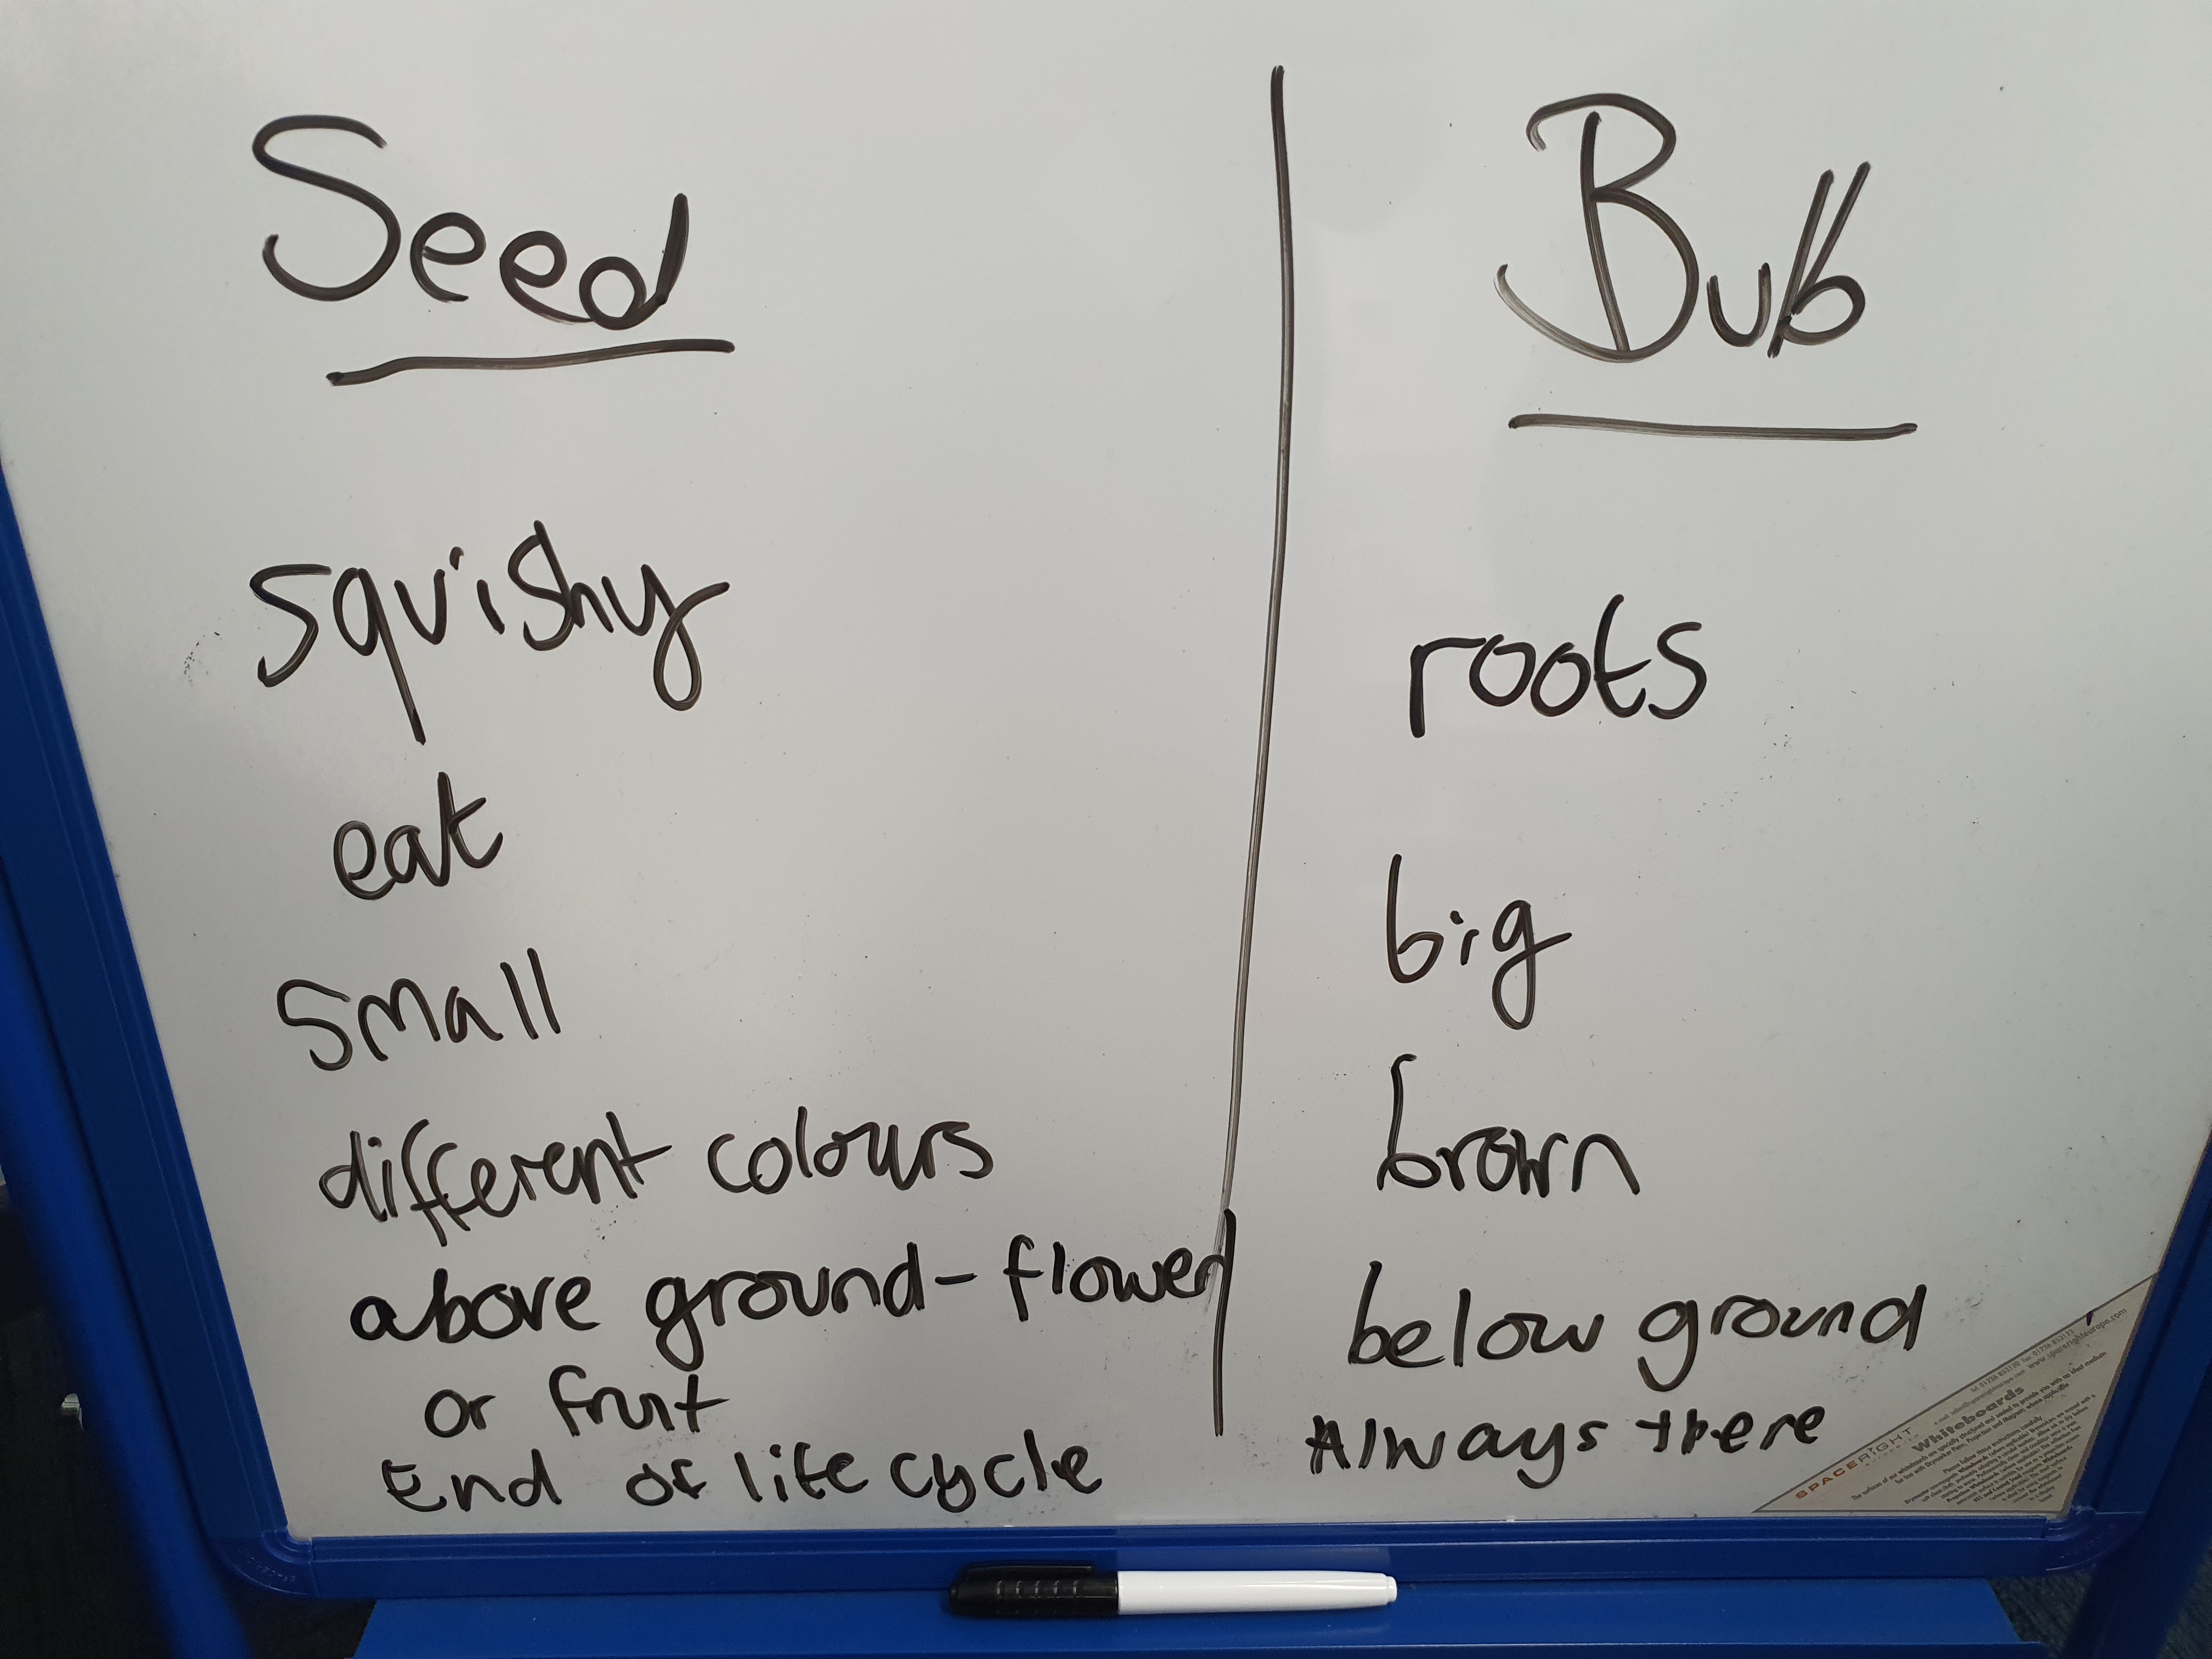 Seed
squishy
eat
small
different colours
above ground - flower
or fruit
End of life cycle
Bulb
roots
big
brown
below ground
Always there
SPACERIGHT
Whiteboards